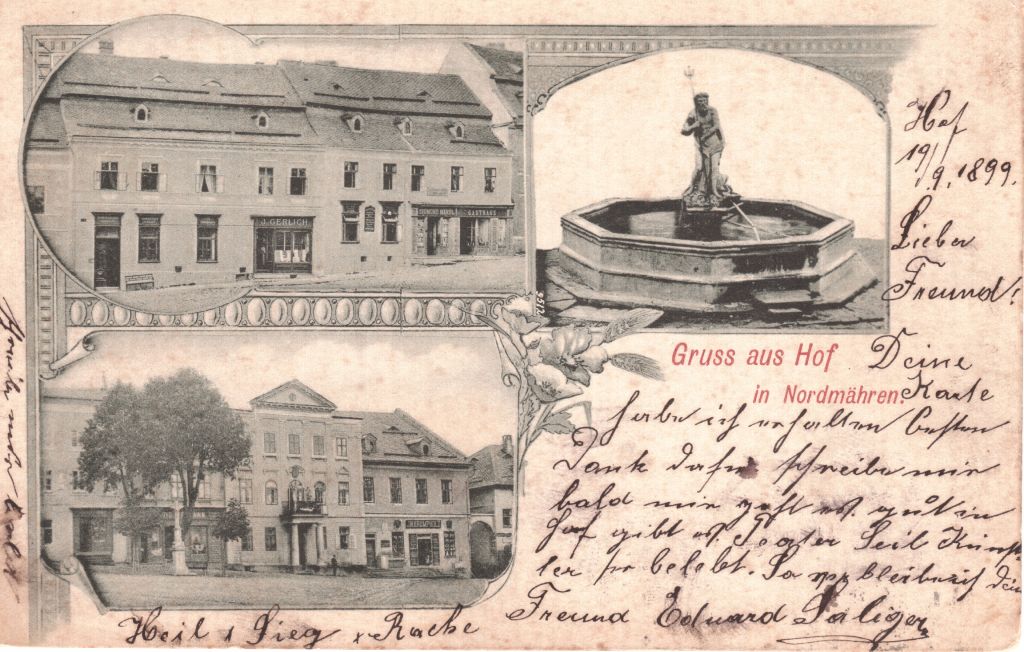 J. GERLICH
GASTHAUS
Hof
19/9. 1899.
Lieber
Freund!
Gruss aus Hof
in Nordmähren.
Deine
Karte
habe ich erhalten besten
Dank dafür schreibe mir
bald mir geht es gut in
Hof gibt es Teater Seil Künst
ler so belebt. bleibe ich Dein
Freund Eduard Saliger
Heil + Sieg + Rache